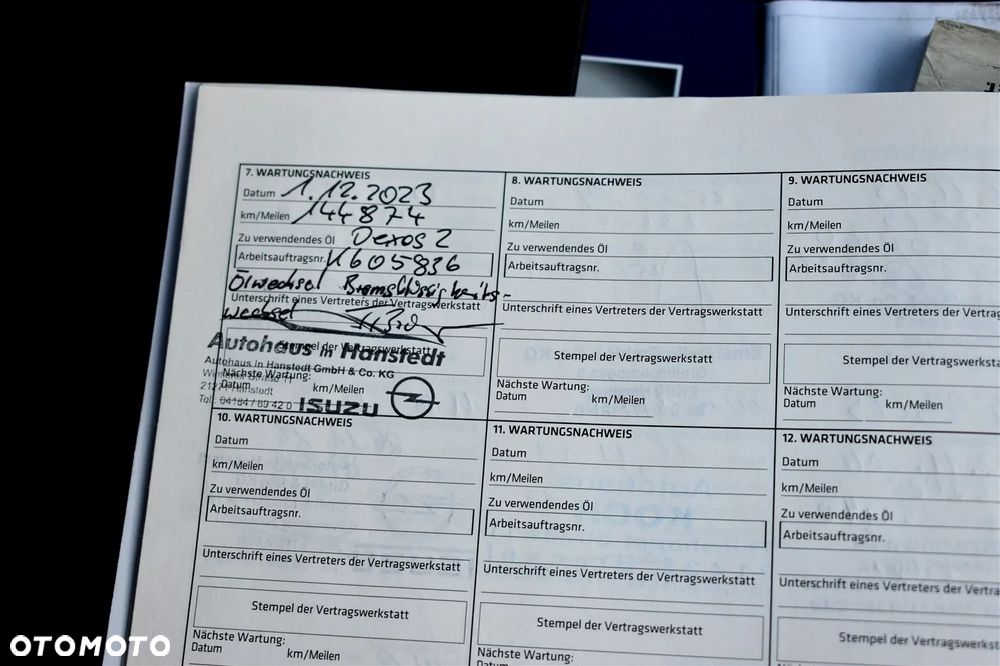 7. WARTUNGSNACHWEIS
Datum 1.12.2023
km/Meilen 144874
Zu verwendendes Öl Dexos 2
Arbeitsauftragsnr. 1605836
Ölwechsel Bremsflüssigkeits-
Unterschrift eines Vertreters der Vertragswerkstatt
wechsel
Stempel der Vertragswerkstatt
Autohaus in Hanstedt
Autohaus in Hanstedt GmbH & Co. KG
Nächste Wartung:
Datum km/Meilen
Hanstedt
Tel. 04184 / 89 42 0 ISUZU
8. WARTUNGSNACHWEIS
Datum
km/Meilen
Zu verwendendes Öl
Arbeitsauftragsnr.
Unterschrift eines Vertreters der Vertragswerkstatt
Stempel der Vertragswerkstatt
Nächste Wartung:
Datum km/Meilen
9. WARTUNGSNACHWEIS
Datum
km/Meilen
Zu verwendendes Öl
Arbeitsauftragsnr.
Unterschrift eines Vertreters der Vertragswerkst
Stempel der Vertragswerkst
Nächste Wartung:
Datum km/Meilen
10. WARTUNGSNACHWEIS
Datum
km/Meilen
Zu verwendendes Öl
Arbeitsauftragsnr.
Unterschrift eines Vertreters der Vertragswerkstatt
Stempel der Vertragswerkstatt
Nächste Wartung:
Datum km/Meilen
11. WARTUNGSNACHWEIS
Datum
km/Meilen
Zu verwendendes Öl
Arbeitsauftragsnr.
Unterschrift eines Vertreters der Vertragswerkstatt
Stempel der Vertragswerkstatt
Nächste Wartung:
12. WARTUNGSNACHWEIS
Datum
km/Meilen
Zu verwendendes Öl
Arbeitsauftragsnr.
Unterschrift eines Vertreters der Vertragswerksta
Stempel der Vertragswerksta
Nächste Wartung:
OTOMOTO